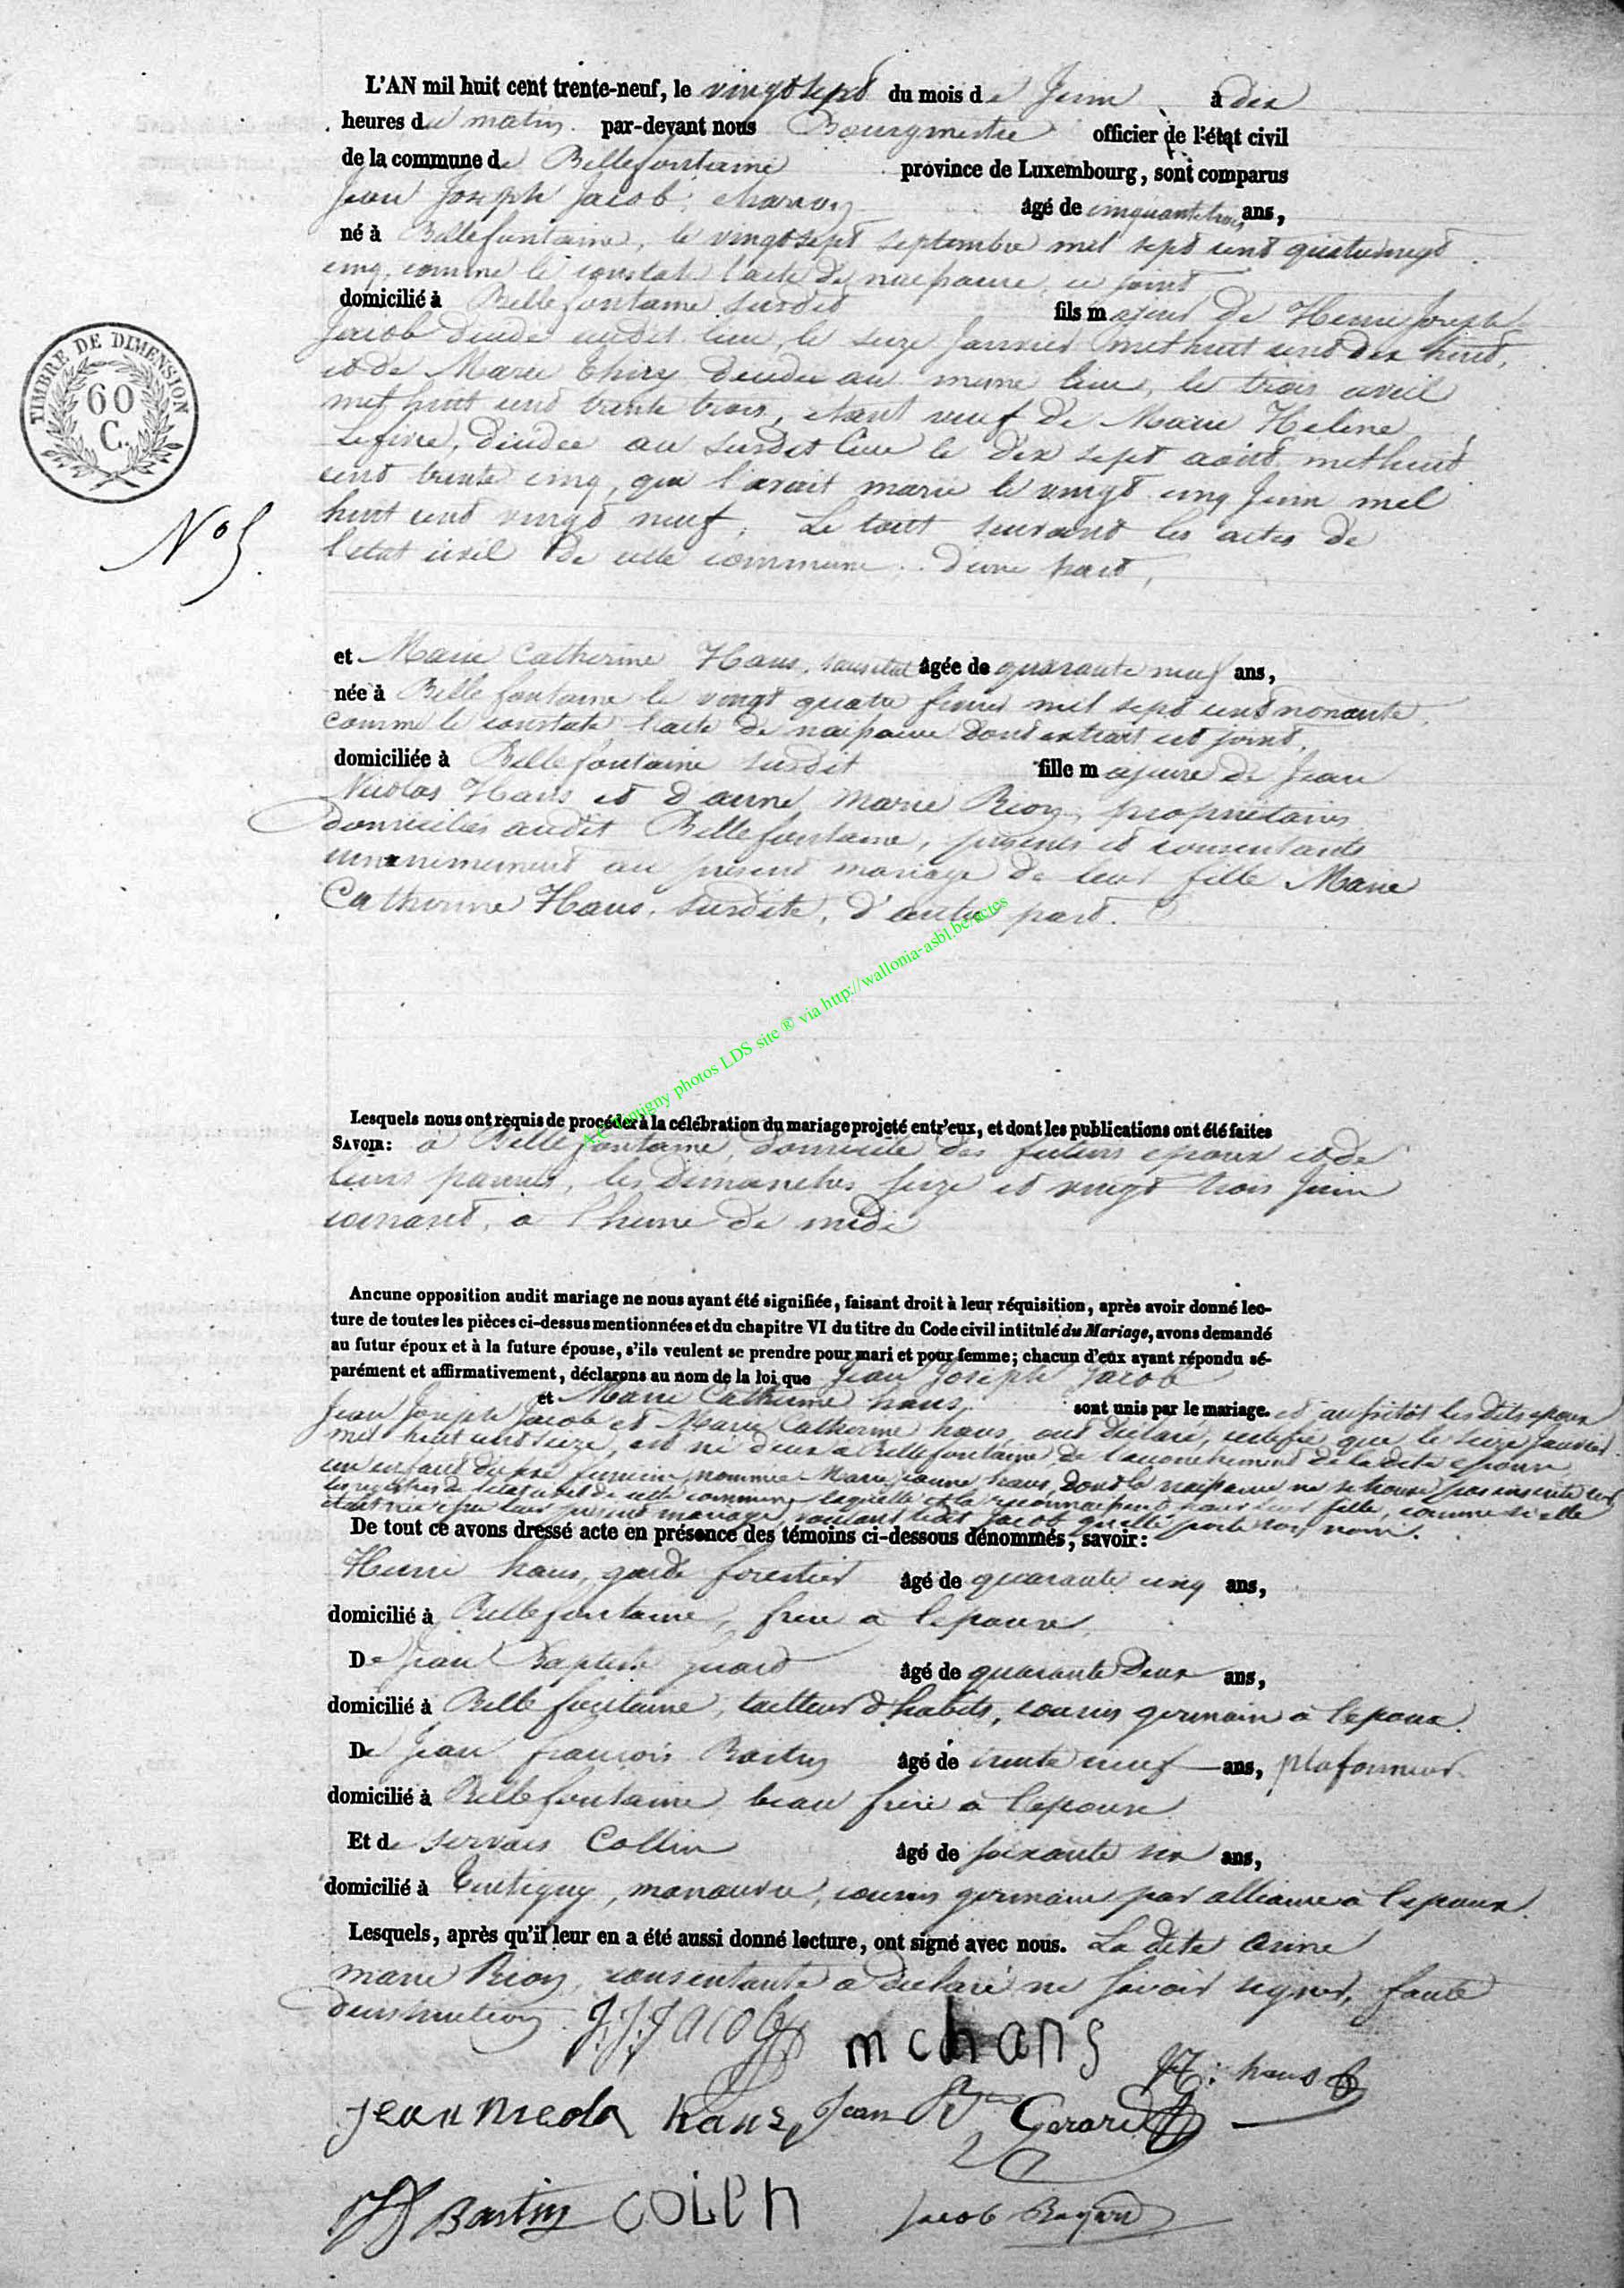 L'AN mil huit cent trente-neuf, le vingt sept du mois de Juin à dix
heures du matin par-devant nous Bourgmestre officier de l'état civil
de la commune de Bellefontaine province de Luxembourg, sont comparus
Jean Joseph Jacob, charron âgé de cinquante trois ans,
né à Bellefontaine, le vingt sept septembre mil sept cent quatrevingt
cinq, comme le constate l'acte de naissance ci joint
domicilié à Bellefontaine susdit fils majeur de Henri Joseph
Jacob décédé audit lieu, le seize Janvier mil huit cent dix huit,
et de Marie Thiry décédée au meme lieu, le trois avril
mil huit cent trente trois, etant veuf de Marie Helene
Lefevre, décédée au susdit lieu le dix sept août mil huit
cent trente cinq, qui l'avait marié le vingt cinq Juin mil
huit cent vingt neuf. Le tout suivant les actes de
l'etat civil de cette commune. d'une part,
TIMBRE DE DIMENSION
60
C.
No 5
et Marie Catherine Hans, sans etat âgée de quarante neuf ans,
née à Bellefontaine le vingt quatre fevrier mil sept cent nonante,
comme le constate l'acte de naissance dont extrait est joint,
domiciliée à Bellefontaine susdit fille majeure de Jean
Nicolas Hans et d'anne Marie Rion, propriétaires
domiciliés audit Bellefontaine, présents et consentants
unanimement au présent mariage de leur fille Marie
Catherine Hans, susdite, d'autre part.
photos LDS site ® via http://wallonia-asbl.be/actes
Lesquels nous ont requis de procéder à la célébration du mariage projeté entr'eux, et dont les publications ont été faites
SAVOIR: à Bellefontaine, domicile des futurs epoux et de
leurs parents, les dimanches seize et vingt trois Juin
courant, a l'heure de midi
Aucune opposition audit mariage ne nous ayant été signifiée, faisant droit à leur réquisition, après avoir donné lec-
ture de toutes les pièces ci-dessus mentionnées et du chapitre VI du titre du Code civil intitulé du Mariage, avons demandé
au futur époux et à la future épouse, s'ils veulent se prendre pour mari et pour femme; chacun d'eux ayant répondu sé-
parément et affirmativement, déclarons au nom de la loi que Jean Joseph Jacob
et Marie Catherine hans, sont unis par le mariage. et aussitôt les dits epoux
Jean Joseph Jacob et Marie Catherine hans, ont déclaré, certifié que le seize Janvier
mil huit cent seize, est né d'eux a Bellefontaine, de l'accouchement de la dite epouse
un enfant du sexe feminin nommée Marie Jeanne hans, dont la naissance ne se trouve pas inscrite sur
les registres de l'etat civil de cette commune, laquelle et la reconnaissent pour leur fille, comme si elle
etait née de leur présent mariage, voulant ledit Jacob qu'elle porte son nom.
De tout ce avons dressé acte en présence des témoins ci-dessous dénommés, savoir:
Henri hans, garde forestier âgé de quarante cinq ans,
domicilié à Bellefontaine, frere a l'epouse,
De Jean Baptiste gerard âgé de quarante deux ans,
domicilié à Bellefontaine, tailleur d'habits, cousin germain a l'epoux.
De Jean francois Bastin âgé de trente neuf ans, plafonneur
domicilié à Bellefontaine, beau frere a l'epouse
Et de Servais Collin âgé de soixante six ans,
domicilié à Tintigny, manoeuvre, cousin germain par alliance a l'epoux.
Lesquels, après qu'il leur en a été aussi donné lecture, ont signé avec nous. La dite anne
marie Rion, consentante a declaré ne savoir signer, faute
d'instruction.
J. J. JACOB mchans
H: hans
jean nicola hans Jean Bte Gerard
JF Bastin COLEN Jacob